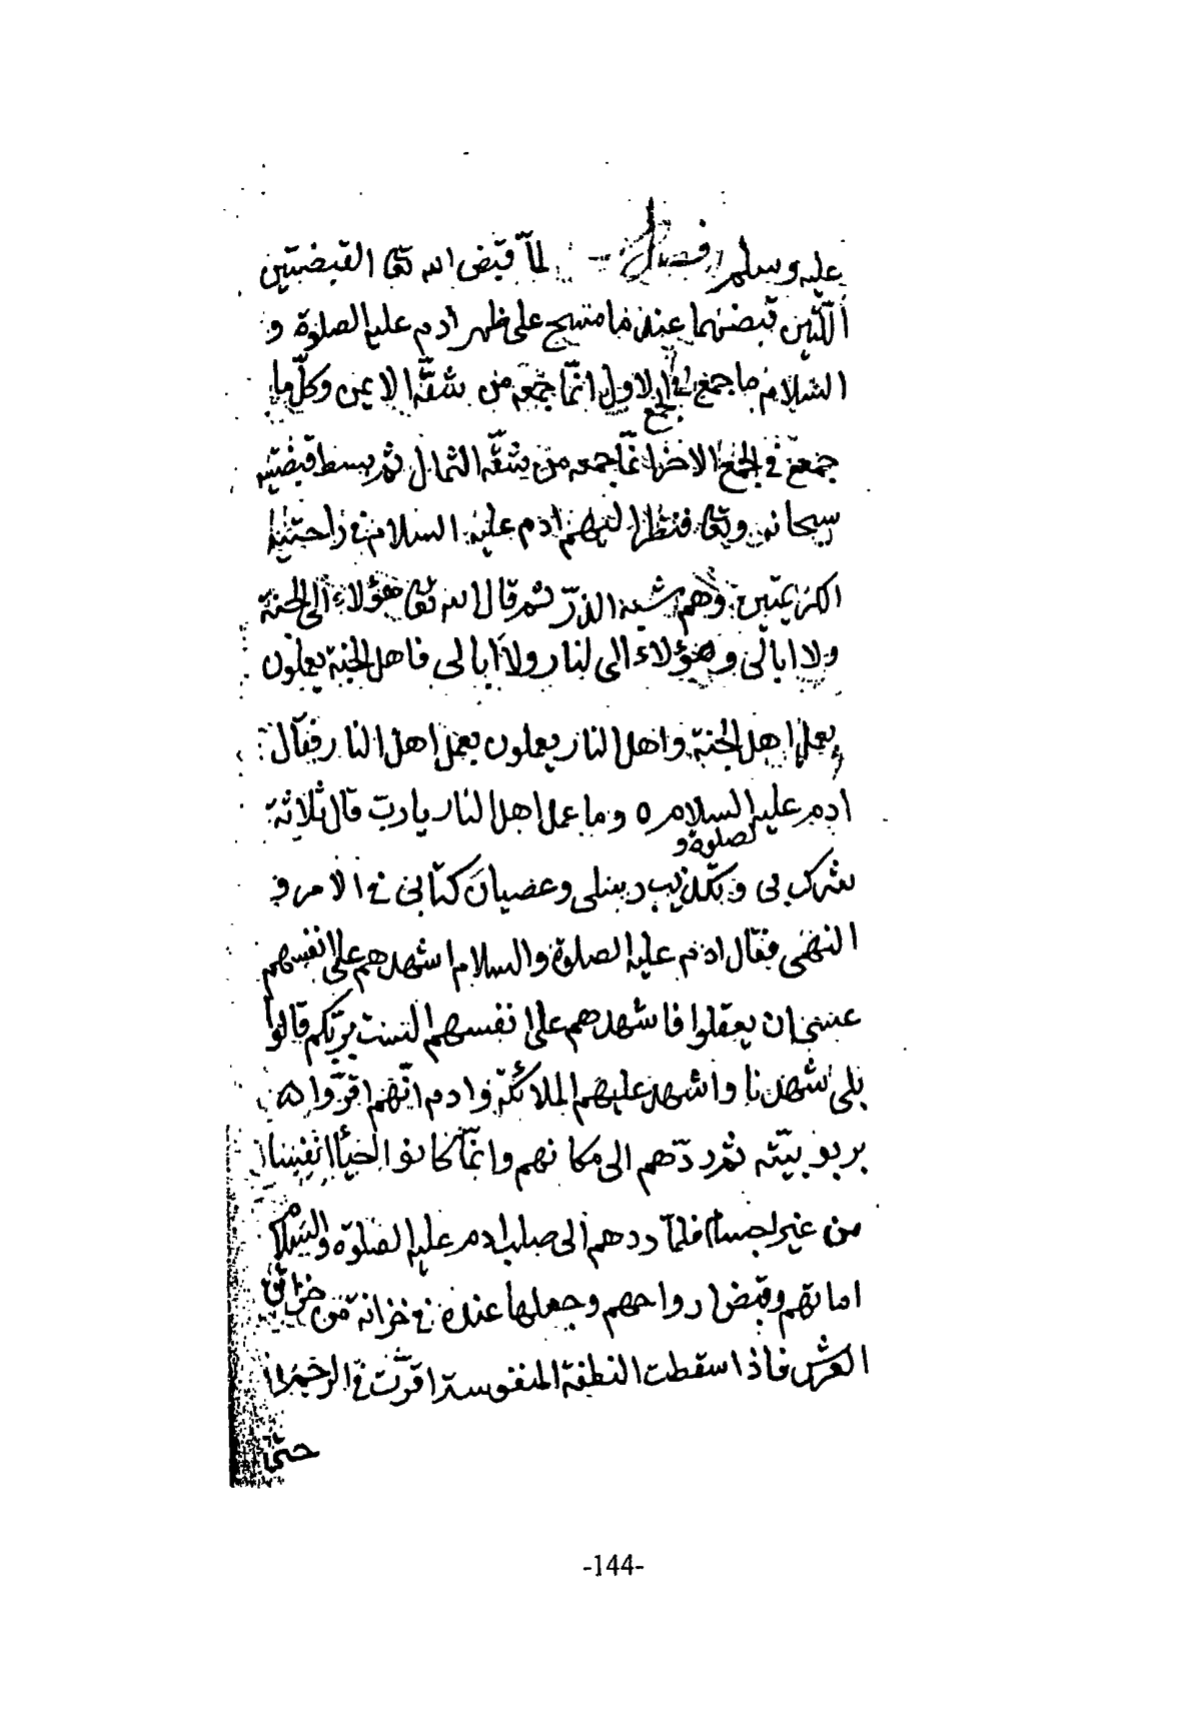 عليه وسلم فصل لمّا قبض الله تعا القبضتين
اللّتين قبضهما عند ما مسح على ظهر ادم عليه الصلوة و
السّلام ما جمع في الجمع الاول انّما جمعه من شقّه الايمن وكلّ ما
جمعه في الجمع الاخر انّما جمعه من شقّه الشمال ثم بسط قبضتيه
سبحانه وتعا فنظر اليهم ادم عليه السلام في راحتيه
الكريمتين وهم شبه الذرّ ثم قال الله تعا هؤلاء الى الجنة
ولا ابالى وهؤلاء الى النار ولا ابالى فاهل الجنة يعملون
بعمل اهل الجنة واهل النار يعملون بعمل اهل النار فقال
ادم عليه الصلوة و السلام ه وما عمل اهل النار يا ربّ قال ثلاثة
شرك بى وتكذيب رسلى وعصيان كتابى في الامر و
النهى فقال ادم عليه الصلوة والسلام اشهدهم على انفسهم
عسى ان يعقلوا فاشهدهم على انفسهم الست بربّكم قالوا
بلى شهدنا واشهد عليهم الملائكة وادم انّهم اقرّوا ه
بربوبيّته ثم ردّهم الى مكانهم وانّما كانوا احياء انفسا
من غير اجسام فلمّا ردهم الى صلب ادم عليه الصلوة والسلام
اماتهم وقبض ارواحهم وجعلها عنده في خزانة من خزائن
العرش فاذا سقطت النطفة المنفوسة اقرّت في الرحم
حتى
-144-